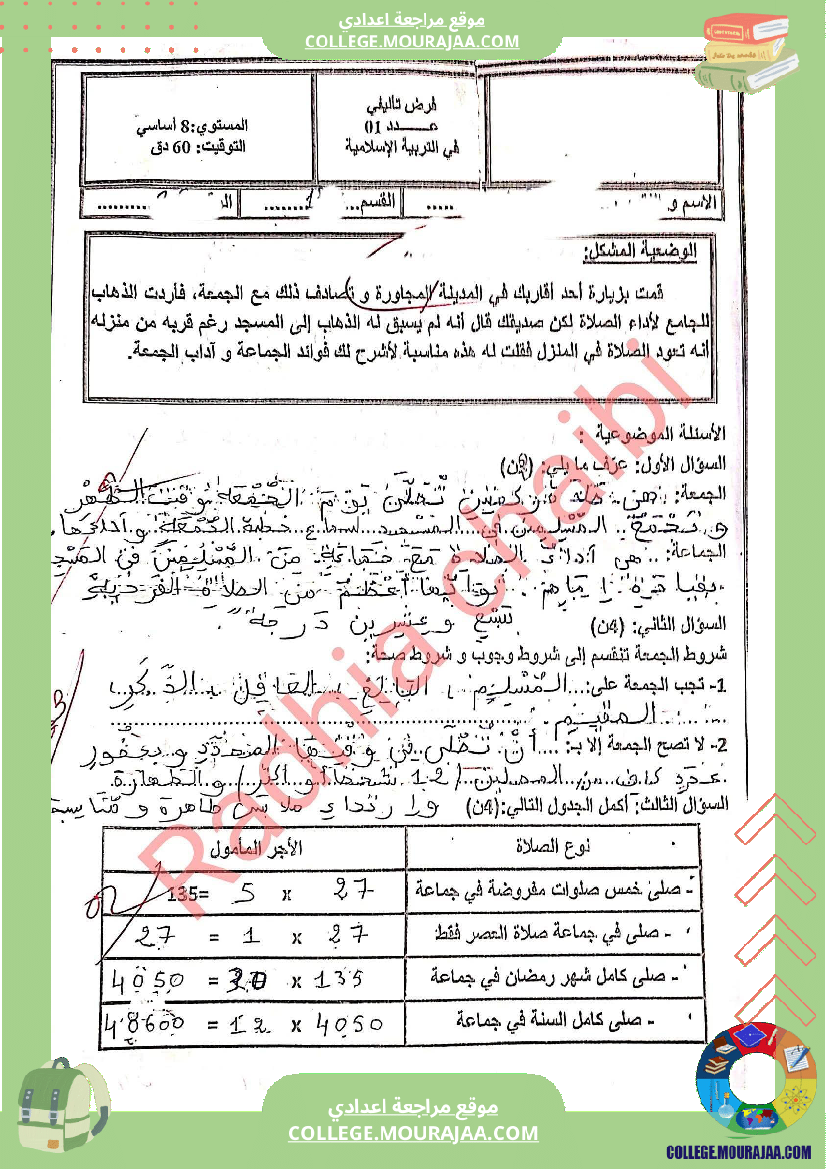 موقع مراجعة اعدادي
COLLEGE.MOURAJAA.COM
فرض تاليفي
عـــدد 01
في التربية الإسلامية
المستوي: 8 أساسي
التوقيت: 60 دق
الاسم و
القسم...
الوضعية المشكل:
قمت بزيارة أحد أقاربك في المدينة المجاورة و تصادف ذلك مع الجمعة، فأردت الذهاب
للجامع لأداء الصلاة لكن صديقك قال أنه لم يسبق له الذهاب إلى المسجد رغم قربه من منزله
أنه تعود الصلاة في المنزل فقلت له هذه مناسبة لأشرح لك فوائد الجماعة و آداب الجمعة.
الأسئلة الموضوعية :
السؤال الأول: عرّف ما يلي: (2ن)
الجمعة: هي من ركعتين تُصَلَّى يوم الجُمْعَة بوقت الظهر
و المسلمين في المسجد لسماع خطبة الجُمْعَة و أداءها.
الجماعة: هي أداء الصلاة مَعَ جَمَاعَة مِنَ المُسْلِمِينَ في
ثوابها أعْظَمُ مِنَ الصلاة الفَرْدِيَّة
وعشرين دَرَجَة.
السؤال الثاني: (4ن)
شروط الجمعة تنقسم إلى شروط وجوب و شروط صحة:
1- تجب الجمعة على: المُسْلِم، البَالِغ، العَاقِل، الذَّكَر،
المقيم.
2- لا تصح الجمعة إلا بـ: أَنْ تُصَلَّى في وقتها المحدد و بحضور
عدد من المصلين (12 شخصا أو أكثر) والطهارة
وارتداء ملابس طاهرة و
السؤال الثالث: أكمل الجدول التالي: (4ن)
نوع الصلاة الأجر المأمول
- صلى خمس صلوات مفروضة في جماعة 27 x 5 =135
- صلى في جماعة صلاة العصر فقط 27 x 1 = 27
- صلى كامل شهر رمضان في جماعة 135 x 30 = 4050
- صلى كامل السنة في جماعة 4050 x 12 = 48600
Radhia chaibi
موقع مراجعة اعدادي
COLLEGE.MOURAJAA.COM
COLLEGE.MOURAJAA.COM